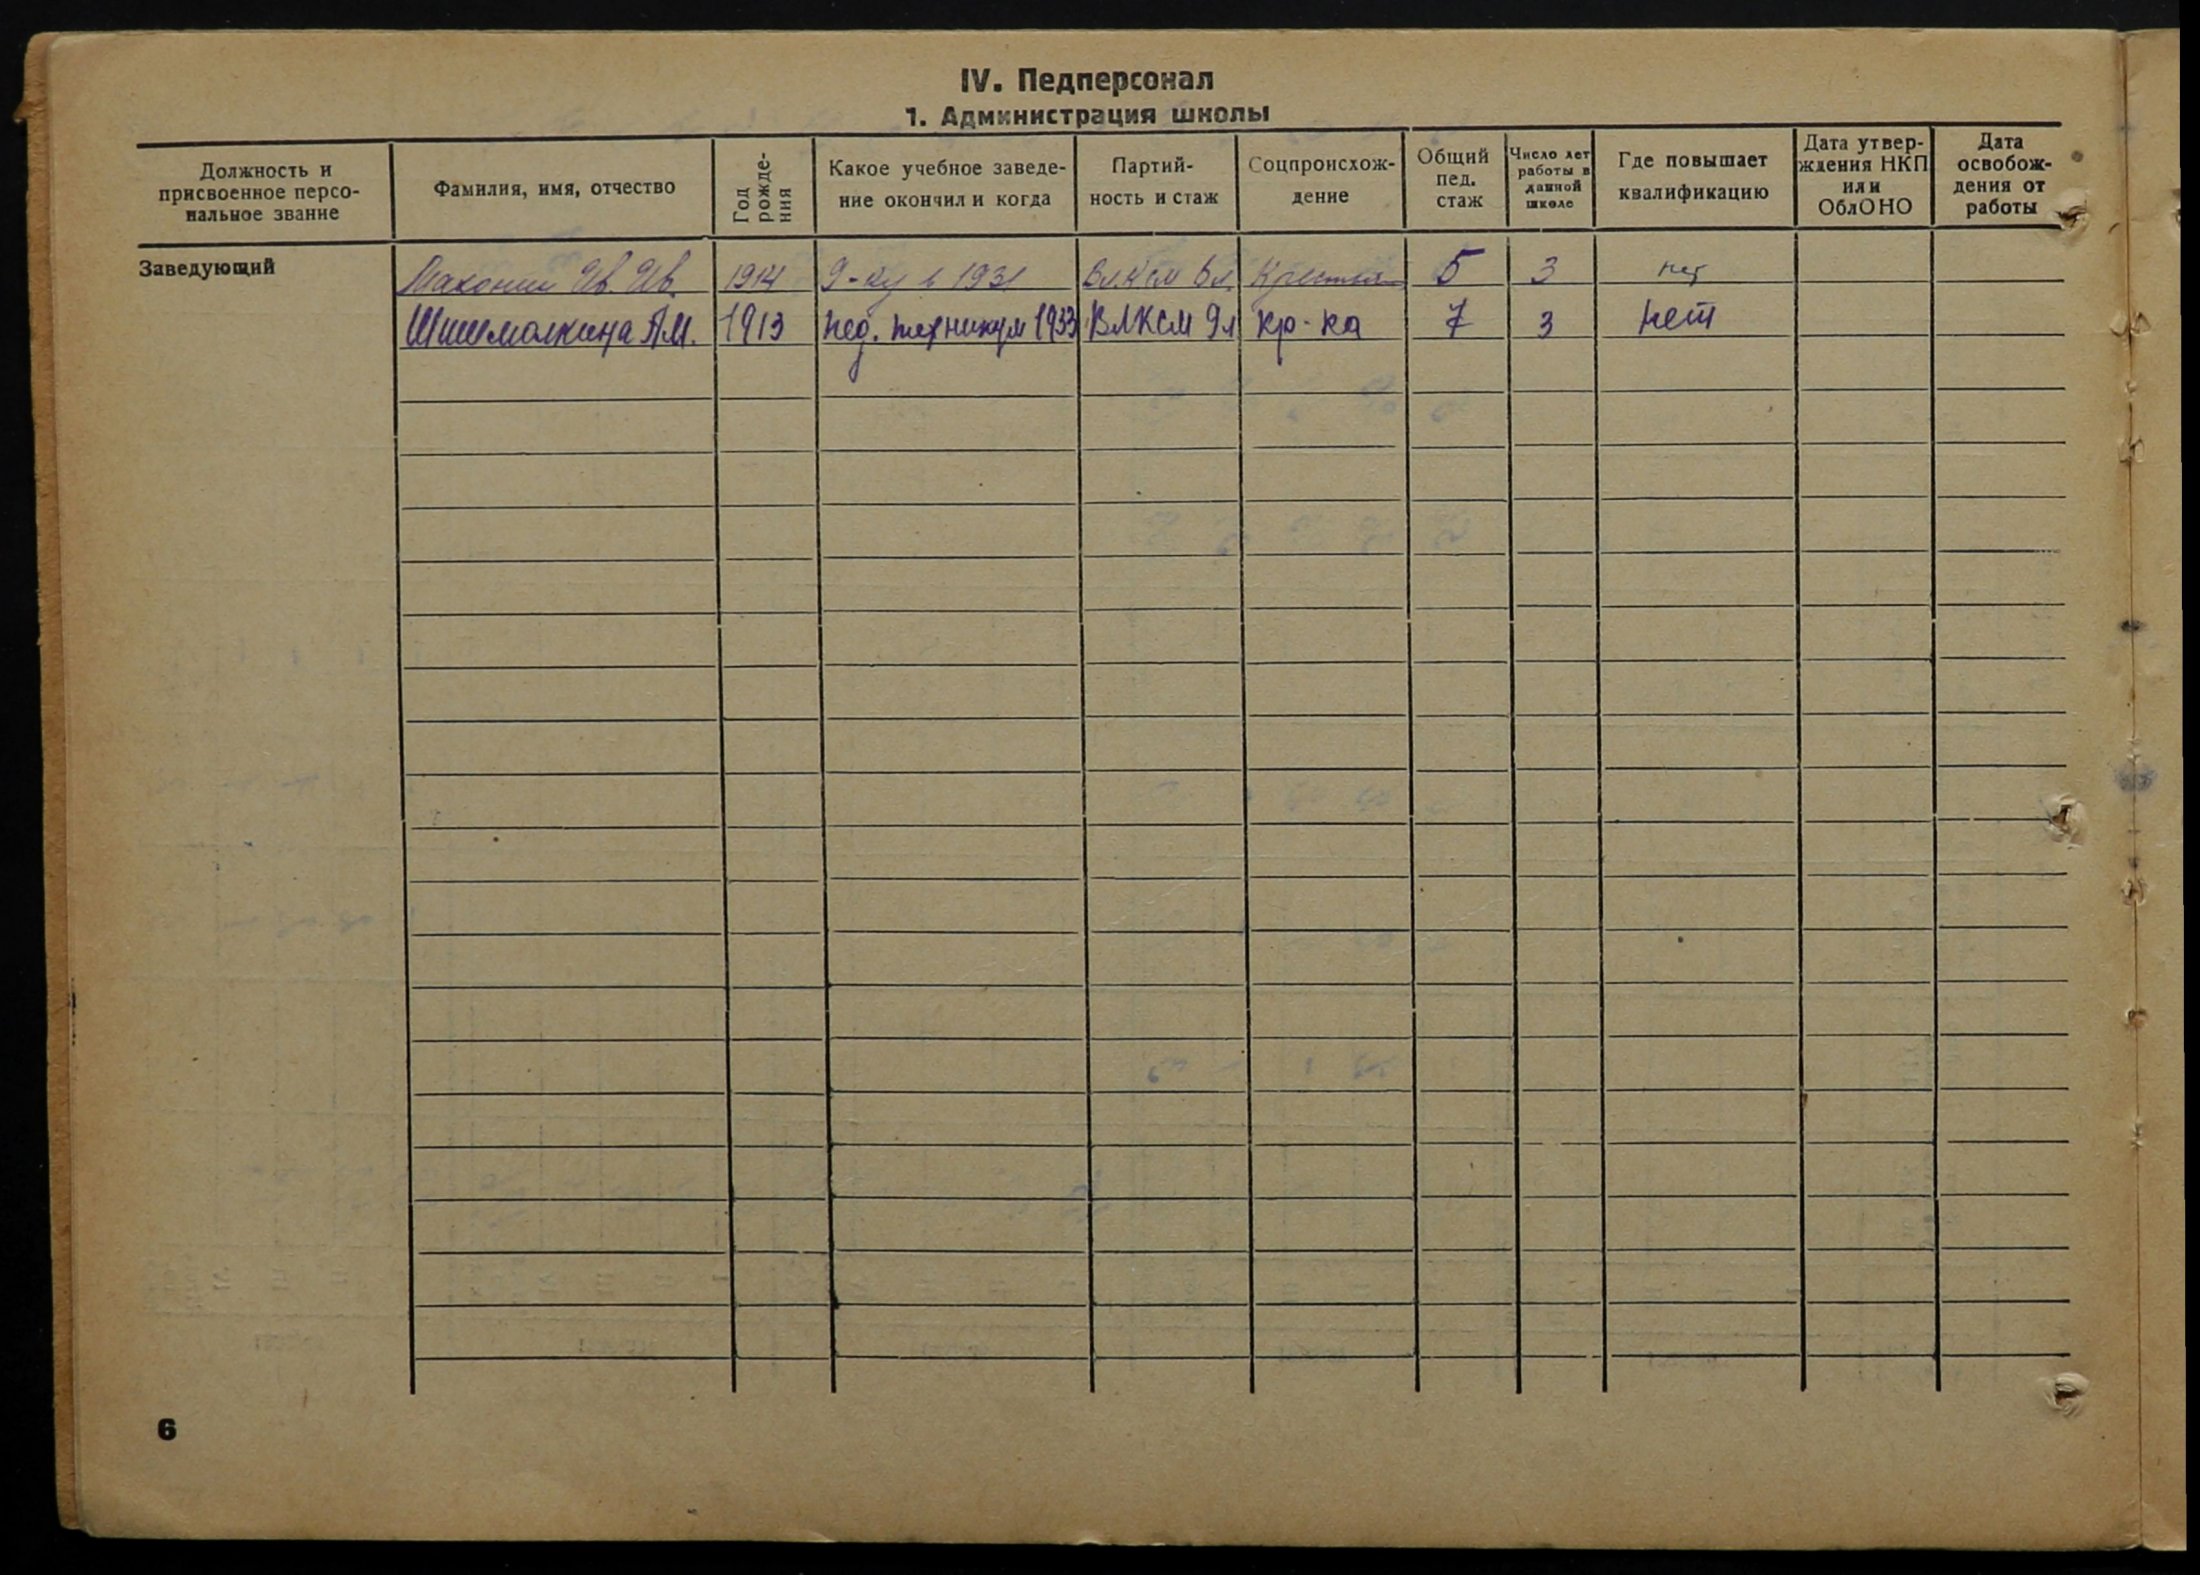 IV. Педперсонал
1. Администрация школы
Должность и присвоенное персональное звание
Фамилия, имя, отчество
Год рождения
Какое учебное заведение окончил и когда
Партийность и стаж
Соцпроисхождение
Общий пед. стаж
Число лет работы в данной школе
Где повышает квалификацию
Дата утверждения НКП или ОблОНО
Дата освобождения от работы
Заведующий
Маконин Ив. Ив. 1914 9-ку в 1931 Влксм 5 3 нет
Шишмолкина А.М. 1913 пед. техникум 1933 ВЛКСМ 9л кр-ка 7 3 нет
6